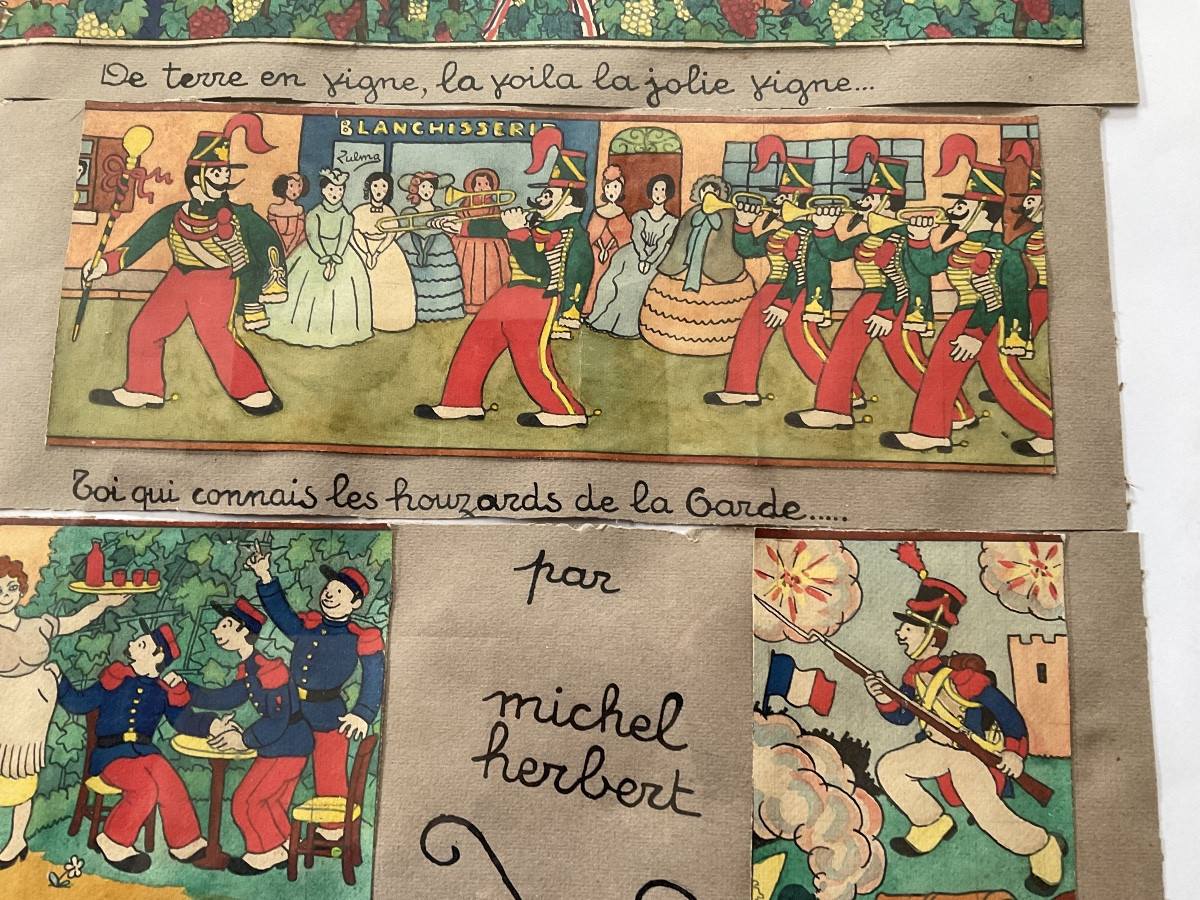 De terre en vigne, la voila la jolie vigne...
BLANCHISSERI
Zulma
Toi qui connais les houzards de la Garde.....
par
michel
herbert